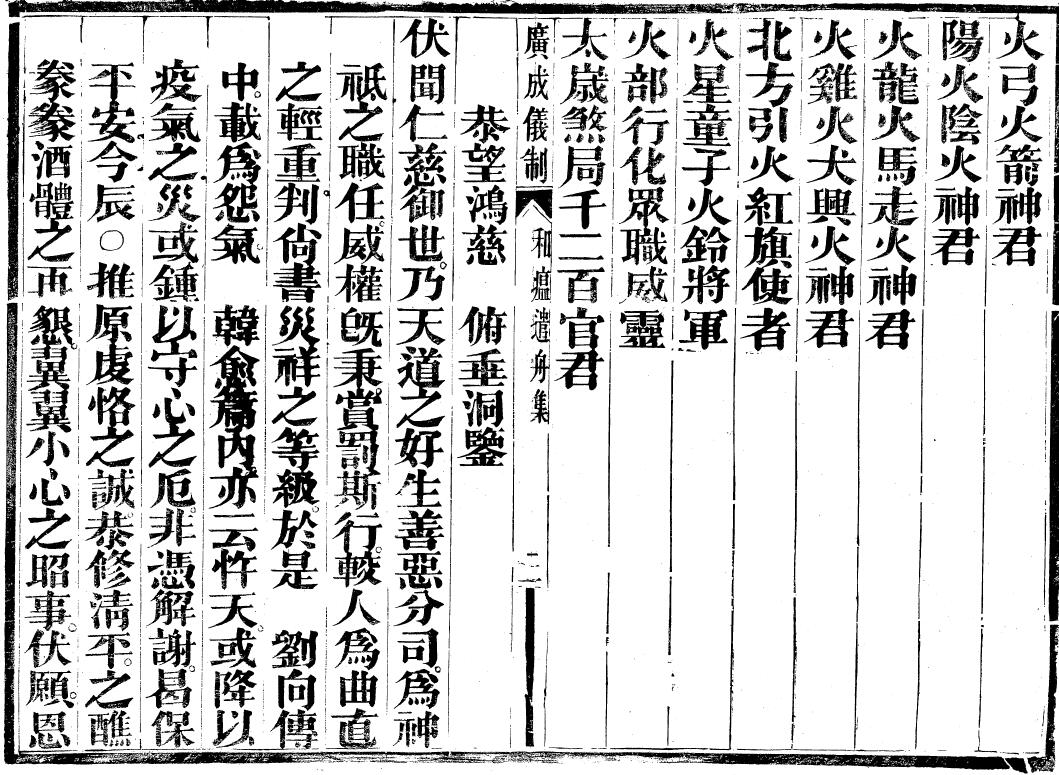 火弓火箭神君
陽火陰火神君
火龍火馬走火神君
火雞火犬興火神君
北方引火紅旗使者
火星童子火鈴將軍
火部行化眾職威靈
太歲煞局千二百官君
廣成儀制 和瘟遣舟集 二
恭望鴻慈 俯垂洞鑒
伏聞仁慈御世。乃天道之好生善惡分司。爲神
祇之職任。威權既秉。賞罰斯行。較人爲曲直
之輕重判。尙書災祥之等級。於是 劉向傳
中。載爲怨氣。 韓愈篇內。亦云忤天。或降以
疫氣之災或鍾以守心之厄。非憑解謝。曷保
平安今辰○推原虔恪之誠。恭修淸平。之醮
豢豢酒醴之再懇。翼翼小心之昭事。伏願。恩